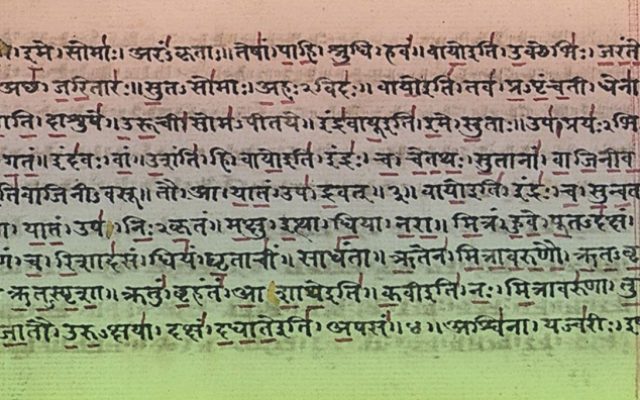 इमे। सोमाः। अरंऽकृताः॥ तेषां। पाहि। श्रुधि। हवं॥ वायोइति। उक्थेभिः। जरंते
अछ। जरितारः॥ सुतऽसोमाः। अहःऽविदः॥ वायोइति। तव। प्रऽपृंचती। धेना
गाति। दाशुषे॥ उरूची। सोमऽपीतये॥ इंद्रवायूइति। इमे। सुताः॥ उप। प्रयःऽभि
गतं॥ इंदवः। वां। उशंति। हि॥ वायोइति। इंद्रः। च। चेतथः। सुतानां। वाजिनीव
तिवाजिनीऽवसू॥ तौ। आ। यातं। उप। द्रवत्॥ ३॥ वायोइति। इंद्रः। च। सुन्वत
यातं। उप। निःऽकृतं॥ मक्षु। इत्था। धिया। नरा॥ मित्रं। हुवे। पूतऽदक्षं।
च। रिशादसं॥ धियं। घृताचीं। साधंता॥ ऋतेन। मित्रावरुणौ। ऋतऽवृ
ऋतऽस्पृशा॥ क्रतुं। बृहंतं। आशाथेइति॥ कवीइति। नः। मित्रावरुणा। तु
जातौ। उरुऽक्षया॥ दक्षं। दधातेइति। अपसं॥ ४॥ अश्विना। यज्वरीः। इ